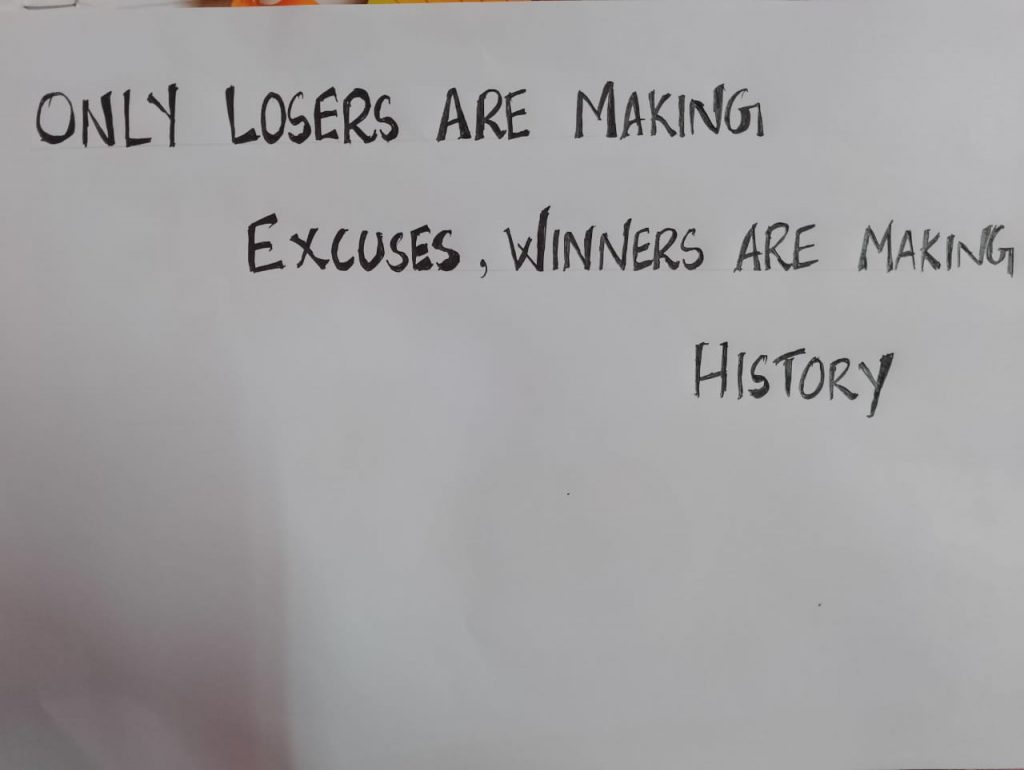 ONLY LOSERS ARE MAKING
EXCUSES, WINNERS ARE MAKING
HISTORY